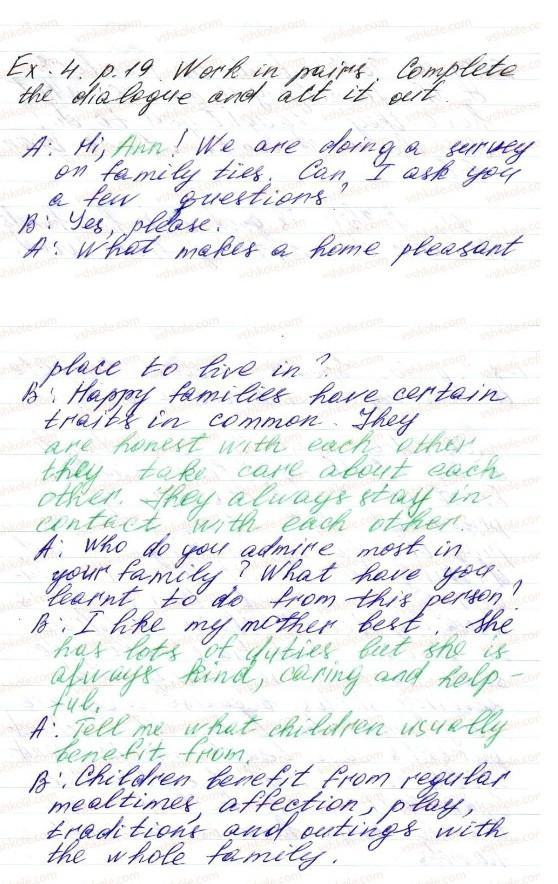 Ex. 4. p. 19 Work in pairs. Complete
the dialogue and act it out.
A: Hi, Ann! We are doing a survey
on family ties. Can I ask you
a few questions?
B: Yes, please.
A: What makes a home pleasant
place to live in?
B: Happy families have certain
traits in common. They
are honest with each other
they take care about each
other. They always stay in
contact with each other.
A: Who do you admire most in
your family? What have you
learnt to do from this person?
B: I like my mother best. She
has lots of duties but she is
always kind, caring and help-
ful.
A: Tell me what children usually
benefit from.
B: Children benefit from regular
mealtimes, affection, play,
traditions and outings with
the whole family.